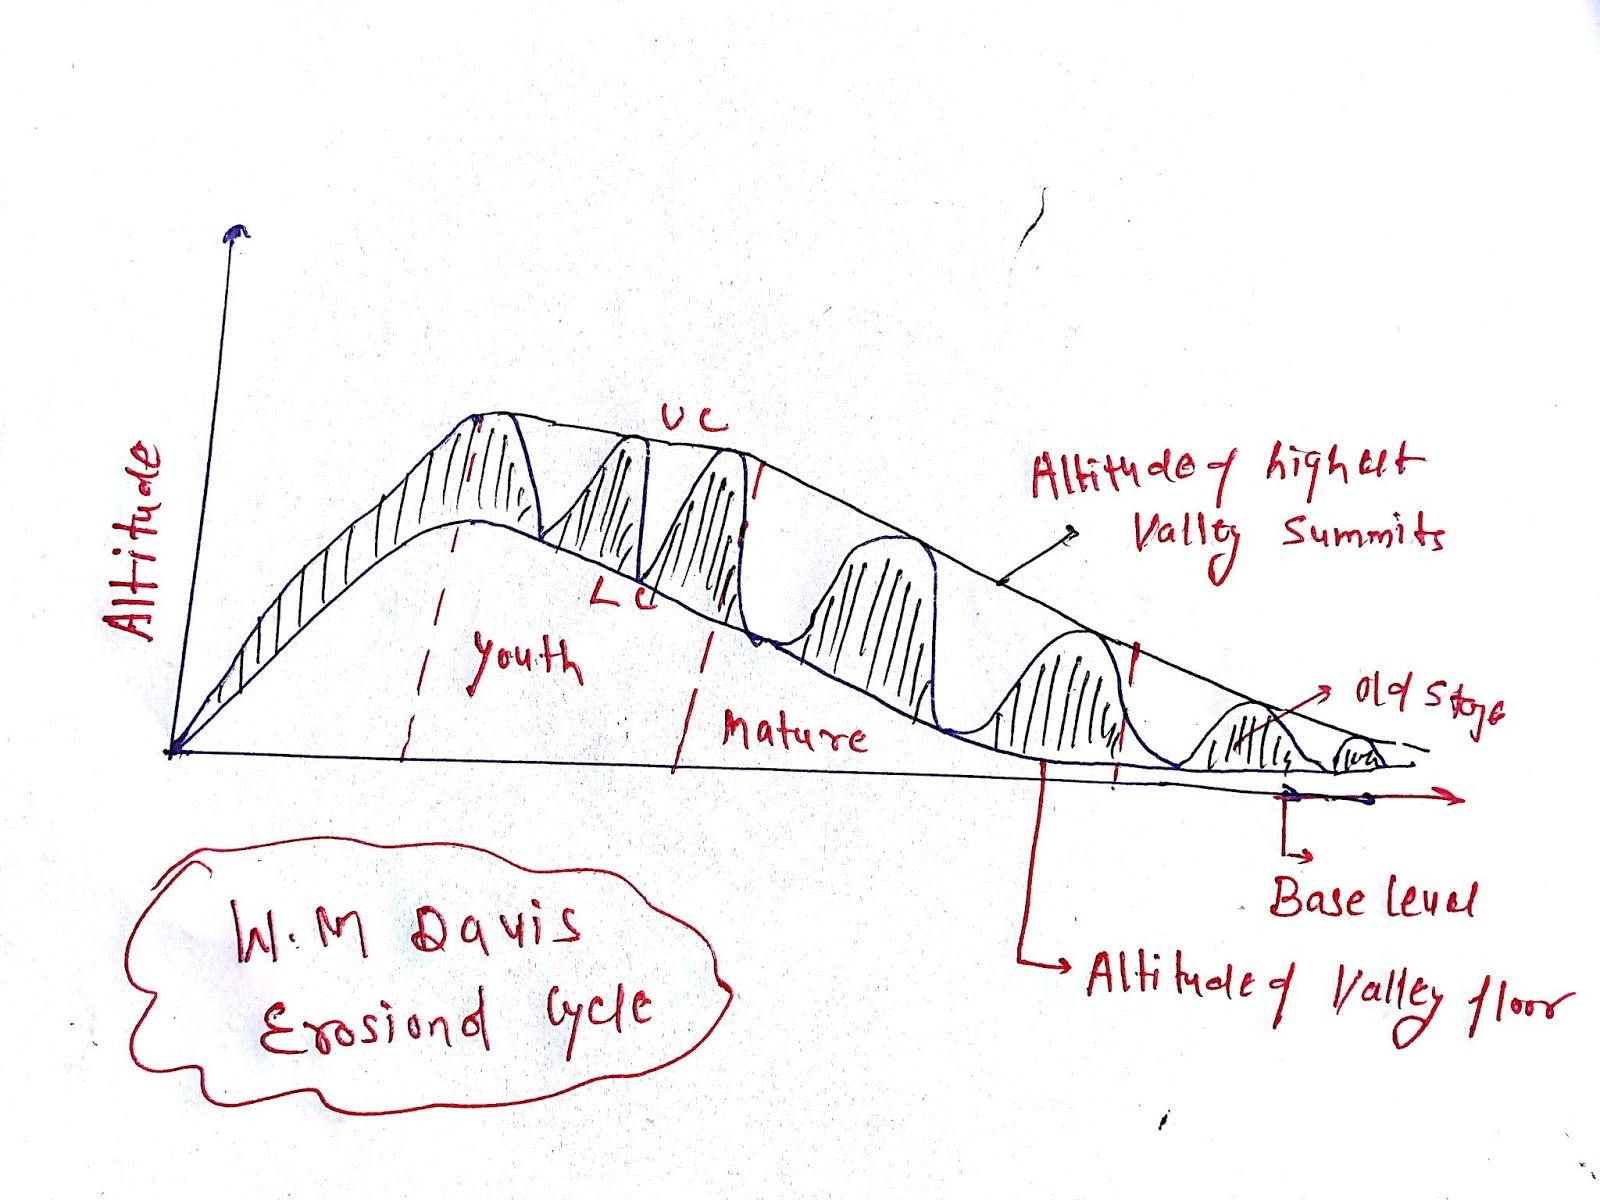 Altitude
U C
Altitude of highest
Valley Summits
L C
Youth
Mature
Old Stage
Base level
Altitude of Valley floor
W. M Davis
Erosional Cycle